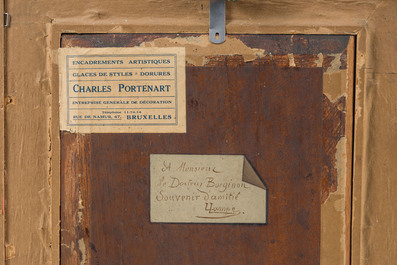 ENCADREMENTS ARTISTIQUES
GLACES DE STYLES / DORURES
CHARLES PORTENART
ENTREPRISE GÉNÉRALE DE DÉCORATION
RUE DE NAMUR, 67, BRUXELLES
A Monsieur
le Docteur
Souvenir d'amitié